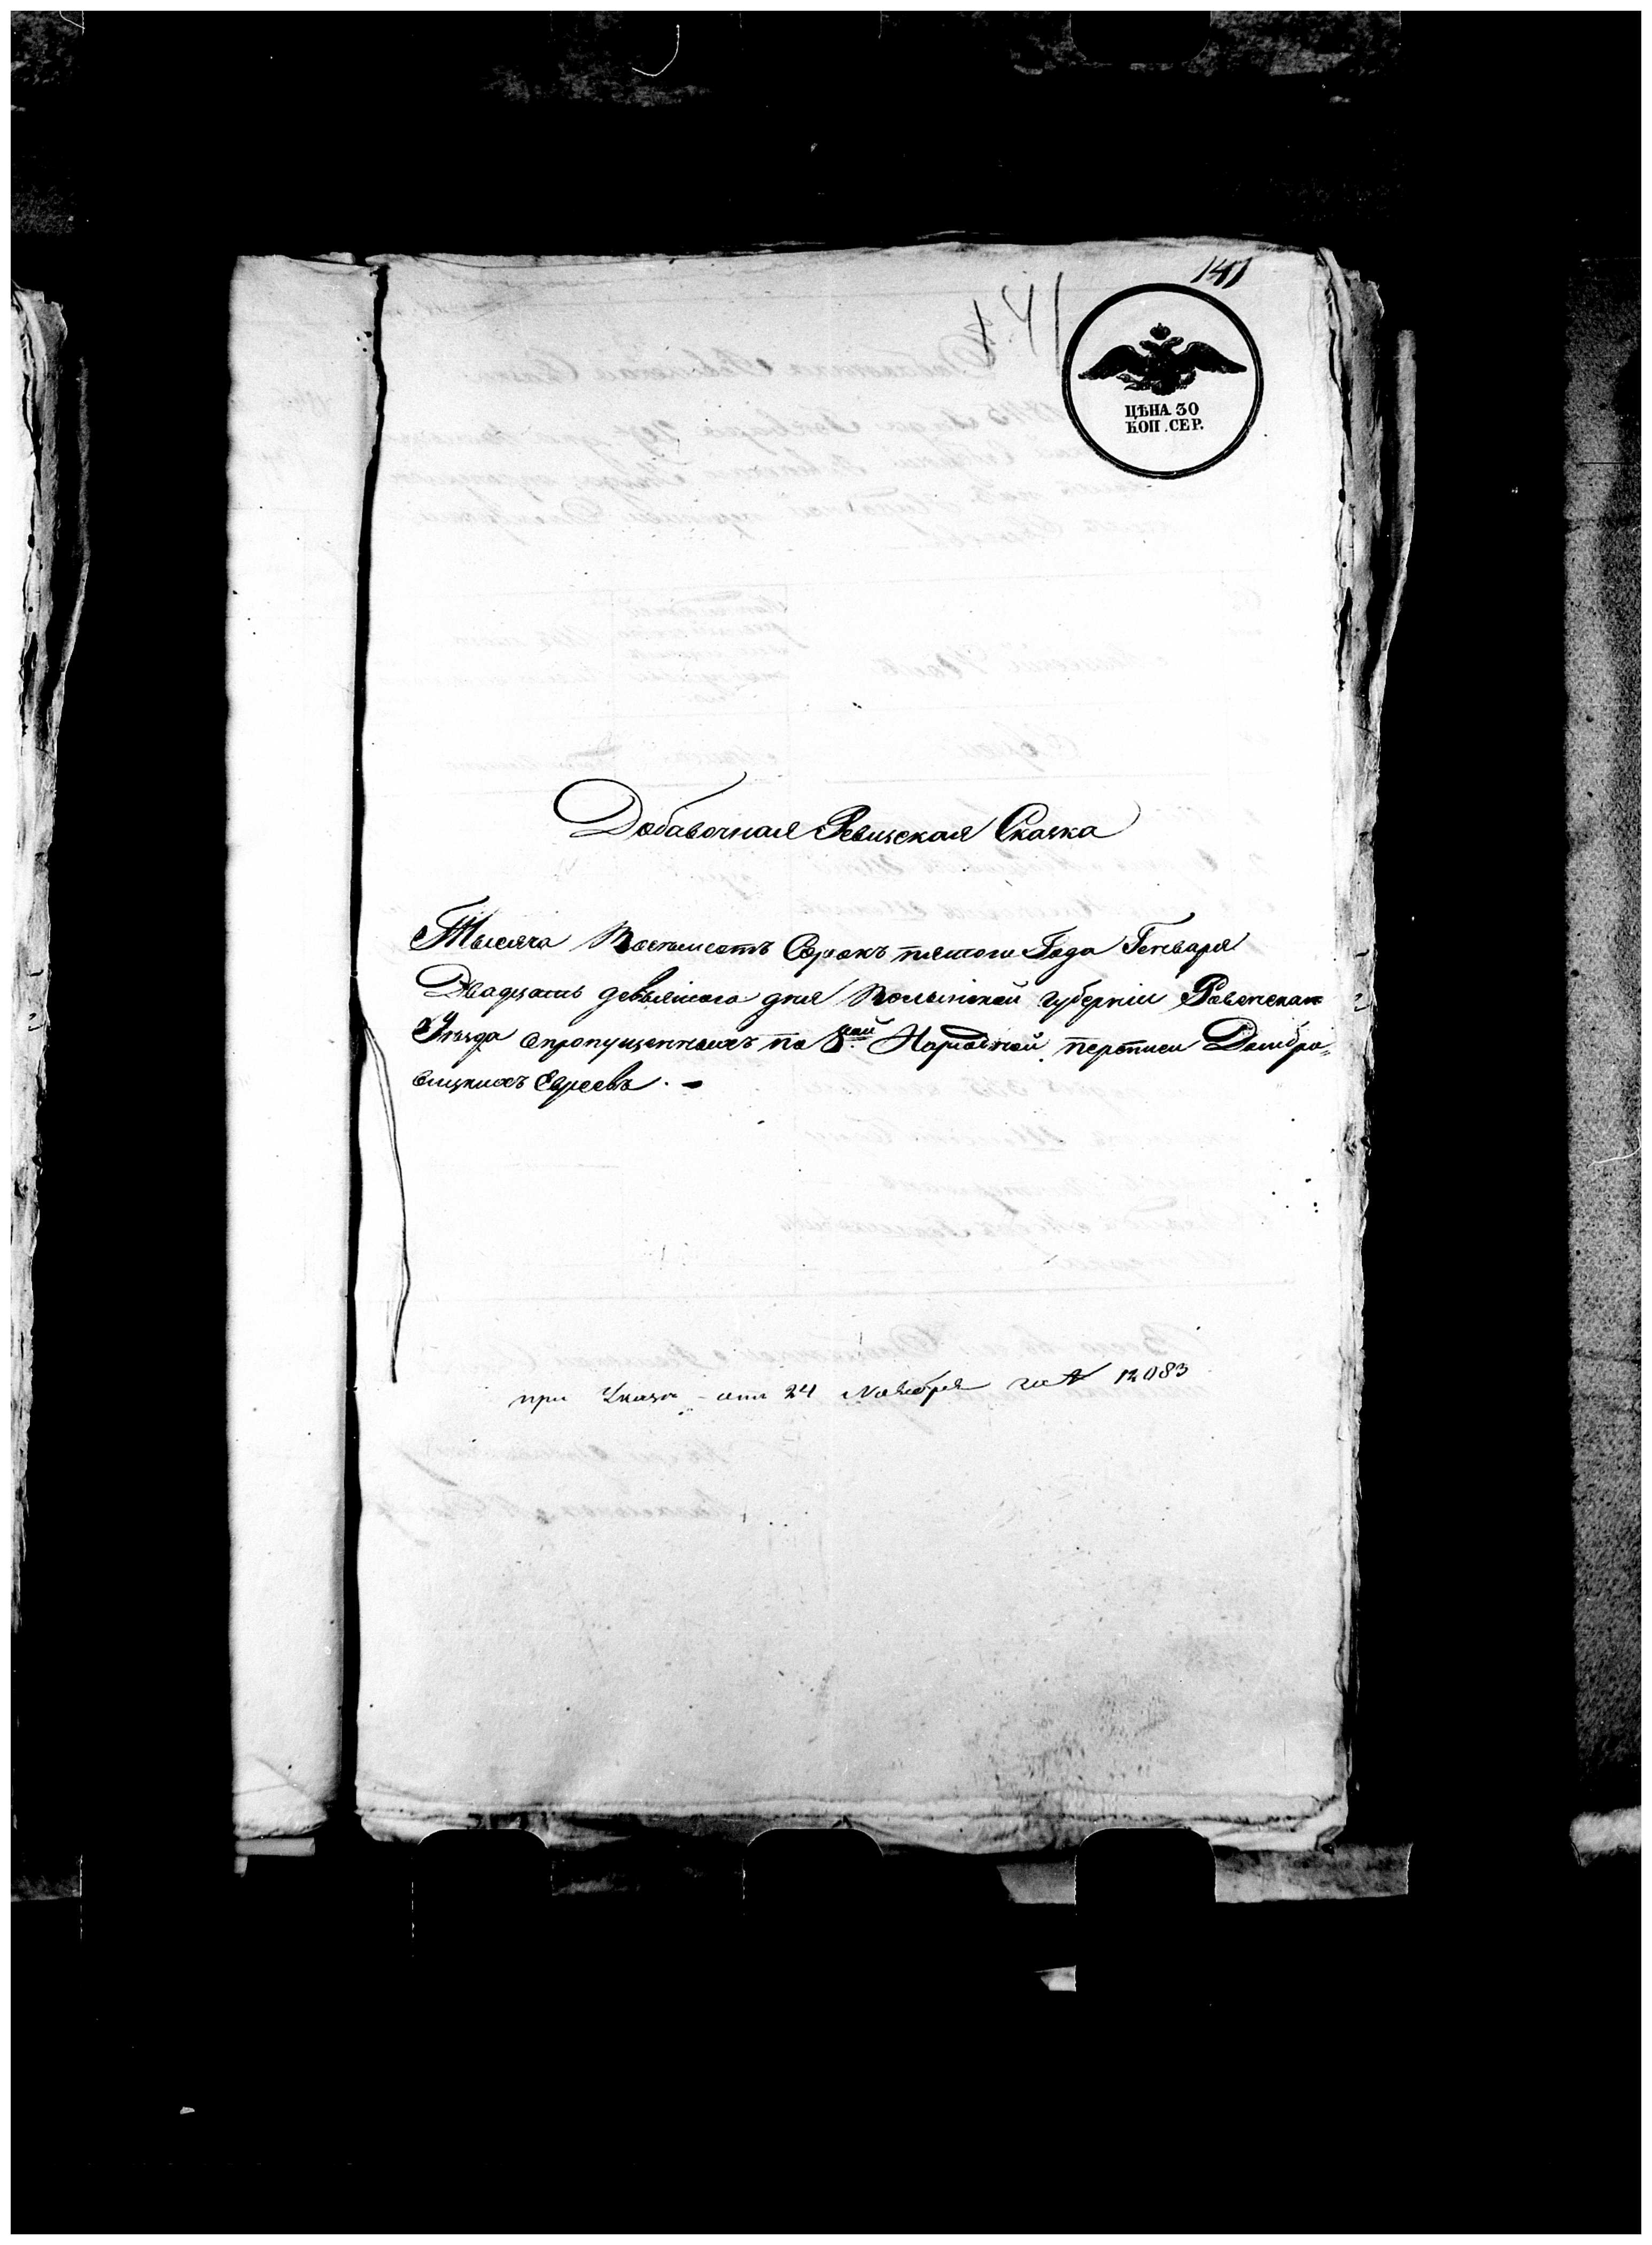 141
141
ЦѢНА 30
КОП. СЕР.
Добавочная Ревизская Сказка
Тысяча Восемьсотъ Сорокъ пятого Года Генваря
Двадцать девьятого дня Волынской губерніи Ровенскаго
Уѣзда опропущенныхъ по 8ной Народной переписи Домбро-
вицкихъ Евреевъ. -
при Указе отъ 24 Ноября за № 12083